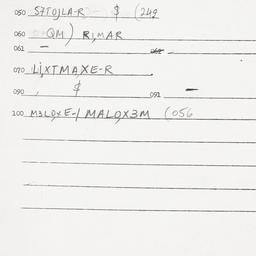 050 S7FOJLA-R $ (249
060 QM) R,MAR
061 —
070 LIXTMAXE-R
090 $ 091 —
100 M3LOXE-/MALOX3M (056